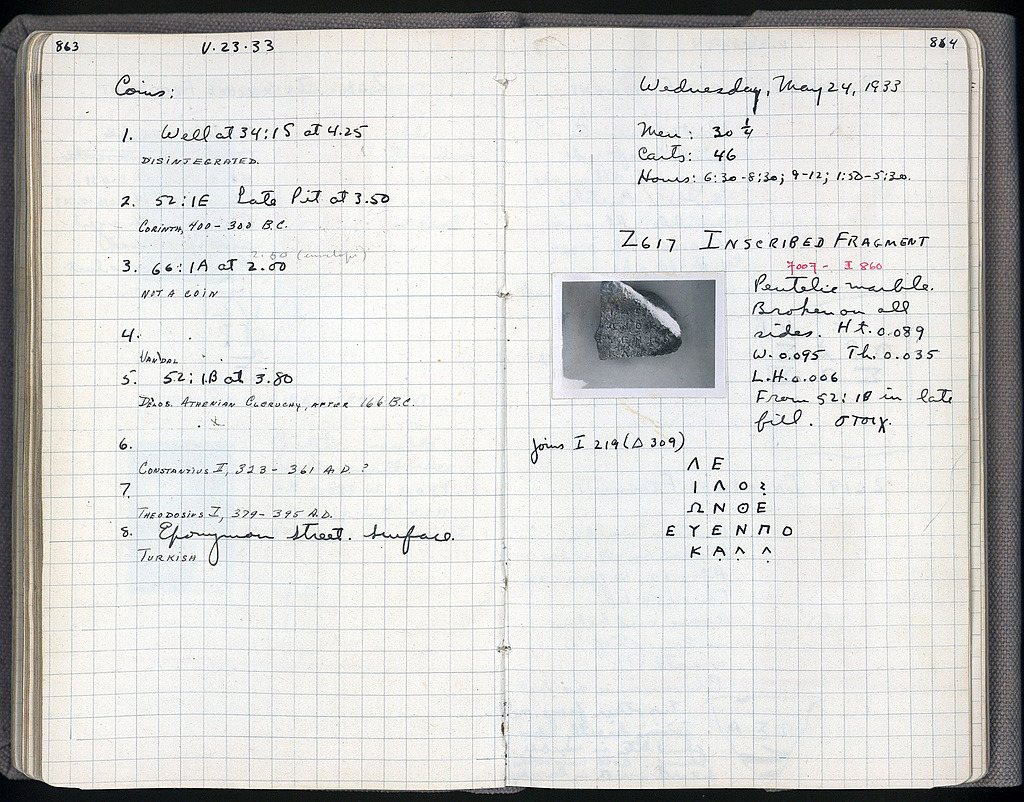 863
V·23·33
Coins:
1. Well at 34:15 at 4.25
DISINTEGRATED.
2. 52:1E Late Pit at 3.50
CORINTH, 400-300 B.C.
2.60 (envelope)
3. 66:1A at 2.00
NOT A COIN
4.
VANDAL
5. 52:1B at 3.80
DELOS. ATHENIAN CLERUCHY, AFTER 166 B.C.
6.
CONSTANTIUS II, 323-361 A.D. ?
7.
THEODOSIUS I, 379-395 A.D.
8. Eponymon Street. Surface.
TURKISH
864
Wednesday, May 24, 1933
Men: 30 1/4
Carts: 46
Hours: 6:30-8:30; 9-12; 1:50-5:30.
Z617 INSCRIBED FRAGMENT
7007- I 860
Pentelic marble.
Broken on all
sides. Ht. 0.089
W. 0.095 Th. 0.035
L.H. 0.006
From 52:1B in late
fill. στοιχ.
Joins I 219 (Δ 309)
Λ Ε
Ι Λ Ο ?
Ω Ν Θ Ε
Ε Υ Ε Ν Π Ο
Κ Α̣ Λ̣ Λ̣